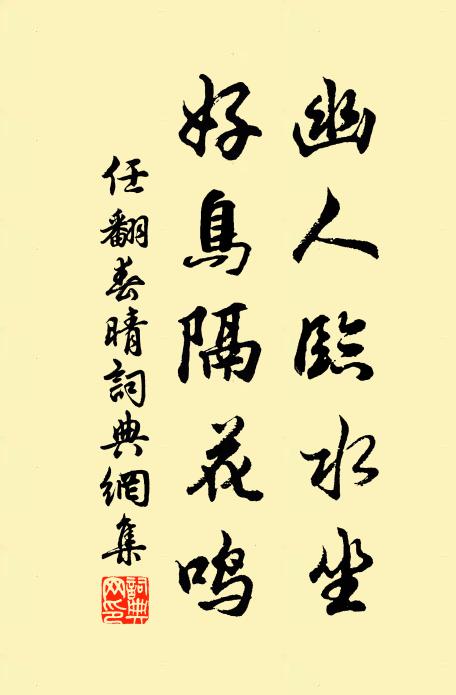 幽人臨水坐
好鳥隔花鳴
任翻春晴詞典網集
詞典網印